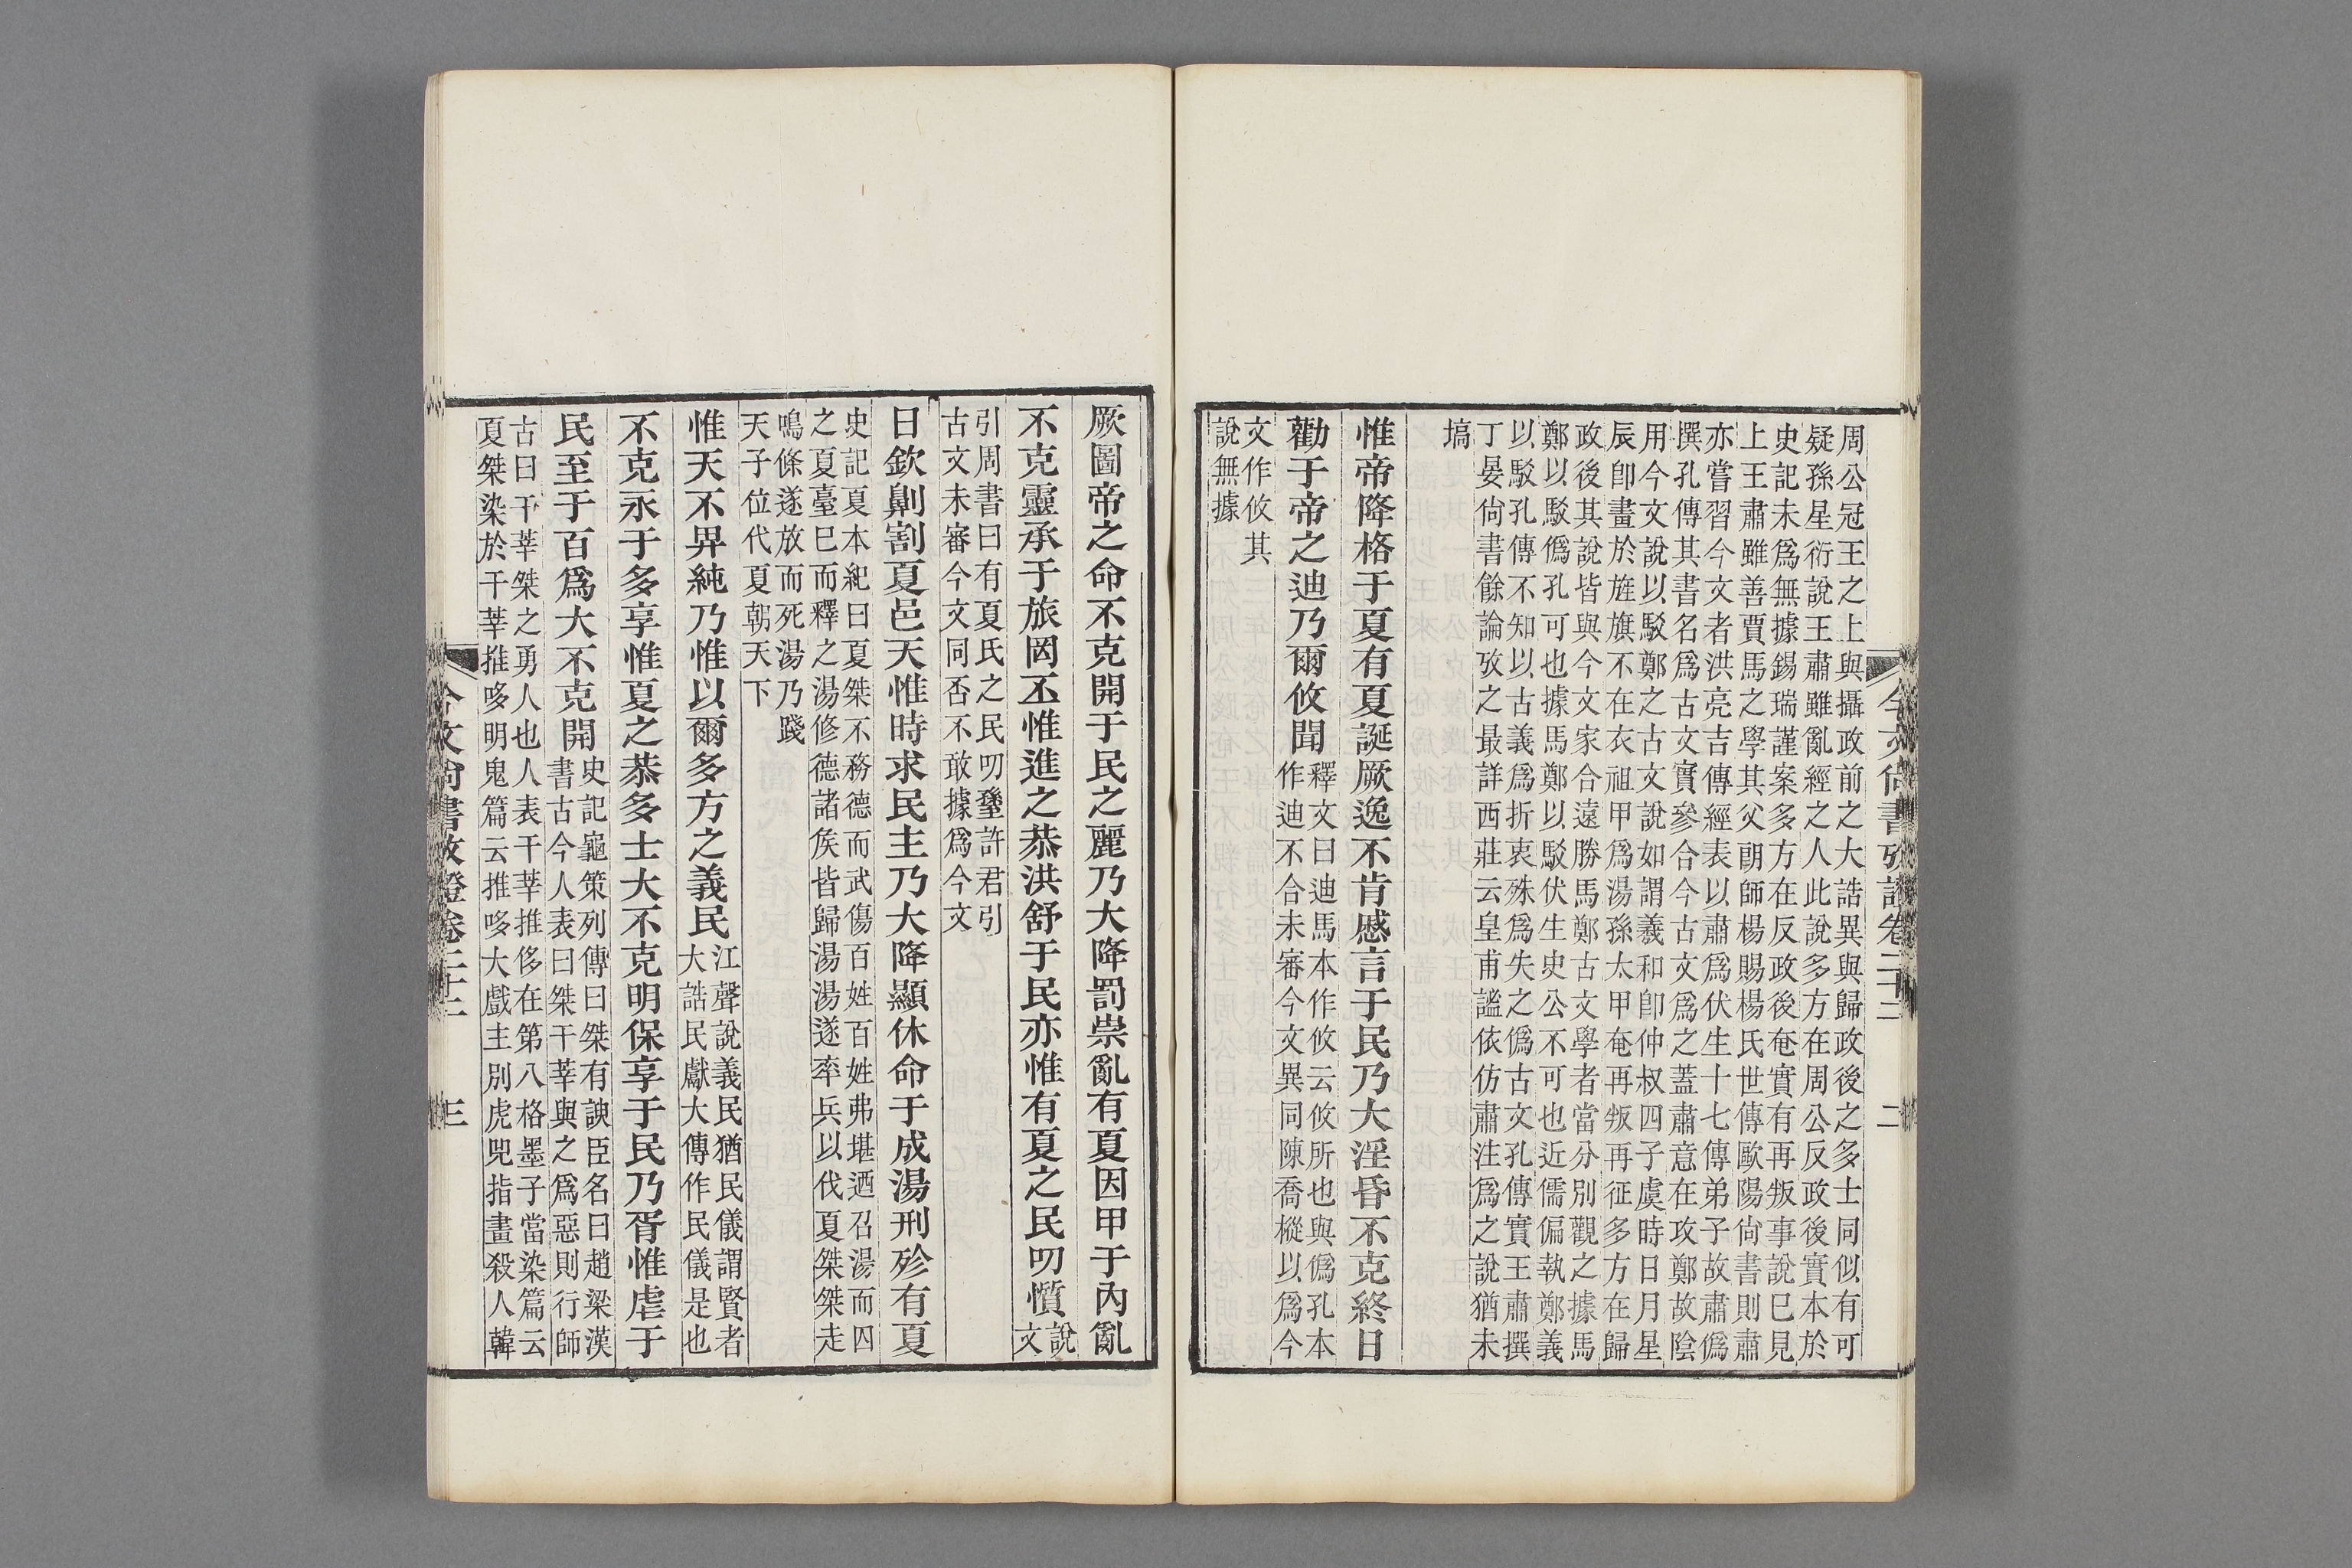 周公冠王之上與攝政前之大誥異與歸政後之多士同似有可
疑孫星衍說王肅雖亂經之人此說多方在周公反政後實本於
史記未爲無據錫瑞謹案多方在反政後奄實有再叛事說已見
上王肅雖善賈馬之學其父朗師楊賜楊氏世傳歐陽尙書則肅
亦嘗習今文者洪亮吉傳經表以肅爲伏生十七傳弟子故肅僞
撰孔傳其書名爲古文實參合今古文爲之蓋肅意在攻鄭故陰
用今文說以駁鄭之古文說如謂羲和卽仲叔四子虞時日月星
辰卽畫於旌旗不在衣祖甲爲湯孫太甲奄再叛再征多方在歸
政後其說皆與今文家合遠勝馬鄭古文學者當分別觀之據馬
鄭以駁僞孔可也據馬鄭以駁伏生史公不可也近儒偏執鄭義
以駁孔傳不知以古義爲折衷殊爲失之僞古文孔傳實王肅撰
丁晏尙書餘論攷之最詳西莊云皇甫謐依仿肅注爲之說猶未
塙
惟帝降格于夏有夏誕厥逸不肯慼言于民乃大淫昏不克終日
勸于帝之迪乃爾攸聞
釋文曰迪馬本作攸云攸所也與僞孔本
作迪不合未審今文異同陳喬樅以爲今
文作攸其
說無據
今文尙書攷證卷二十三
二
厥圖帝之命不克開于民之麗乃大降罰崇亂有夏因甲于內亂
不克靈承于旅罔丕惟進之恭洪舒于民亦惟有夏之民叨懫
說
文
引周書曰有夏氏之民叨𡠗許君引
古文未審今文同否不敢據爲今文
日欽劓割夏邑天惟時求民主乃大降顯休命于成湯刑殄有夏
史記夏本紀曰夏桀不務德而武傷百姓百姓弗堪迺召湯而囚
之夏臺已而釋之湯修德諸侯皆歸湯湯遂率兵以伐夏桀桀走
鳴條遂放而死湯乃踐
天子位代夏朝天下
惟天不畀純乃惟以爾多方之義民
江聲說義民猶民儀謂賢者
大誥民獻大傳作民儀是也
不克永于多享惟夏之恭多士大不克明保享于民乃胥惟虐于
民至于百爲大不克開
史記龜策列傳曰桀有諛臣名曰趙梁漢
書古今人表曰桀干莘與之爲惡則行師
古曰干莘桀之勇人也人表干莘推侈在第八格墨子當染篇云
夏桀染於干莘推哆明鬼篇云推哆大戲主別虎兕指畫殺人韓
今文尙書攷證卷二十三
三